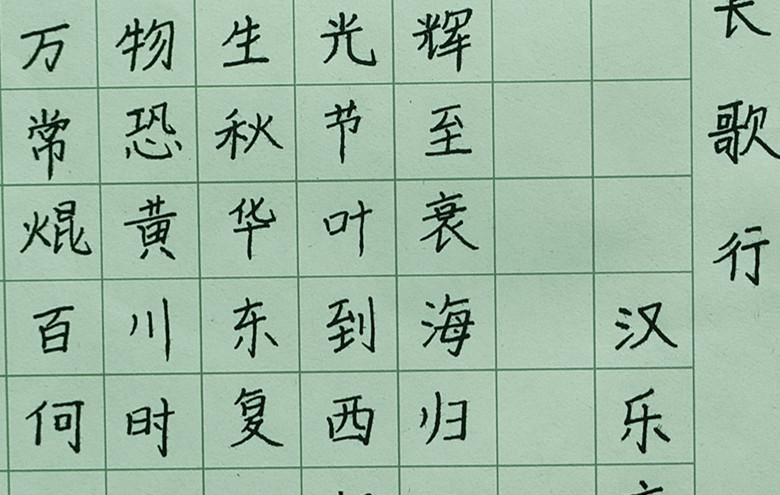 长歌行
汉乐
万物生光辉
常恐秋节至
焜黄华叶衰
百川东到海
何时复西归